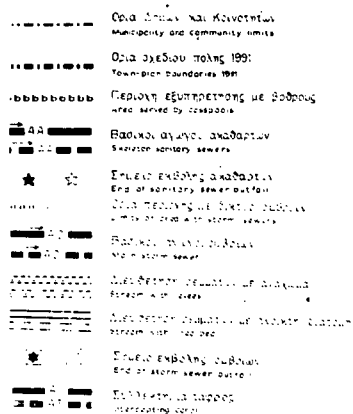 Ορια Δημων και Κοινοτήτων
Municipality and community limits
Ορια σχεδιου πολης 1991
Town-plan boundaries 1991
Περιοχη εξυπηρετησης με βοθρους
Area served by cesspools
AA
Βασικοι αγωγοι ακαθαρτων
Skeleton sanitary sewers
Σημειο εκβολης ακαθαρτων
End of sanitary sewer outfall
Ορια περιοχης με δικτυο ομβριων
Limits of area with storm sewers
Βασικοι
Main storm sewer
Διευθετηση ρεματων με
Stream with
Διευθετηση ρεματων με
Stream with
Σημειο εκβολης ομβριων
End of storm sewer outfall
Συλλεκτηρια ταφρος
Intercepting canal